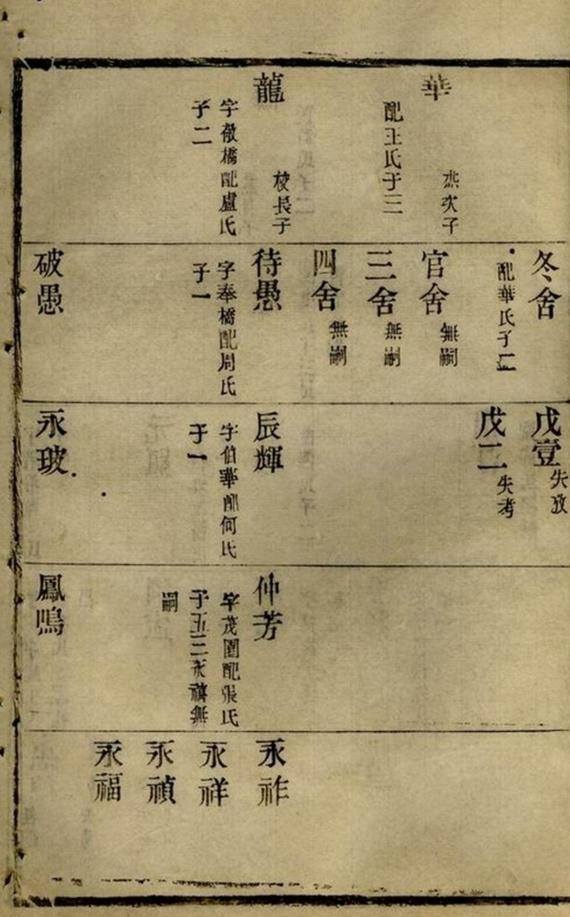 華
次子
配王氏子三
龍
長子
字徵橋配盧氏
子二
冬舍
配華氏子二
官舍 無嗣
三舍 無嗣
四舍 無嗣
待愚
字奉橋配周氏
子一
破愚
戊壹 失攷
戊二 失考
辰輝
字伯華配何氏
子一
永玻
仲芳
字茂園配張氏
子五三永無
嗣
鳳鳴
永祚
永祥
永禎
永福